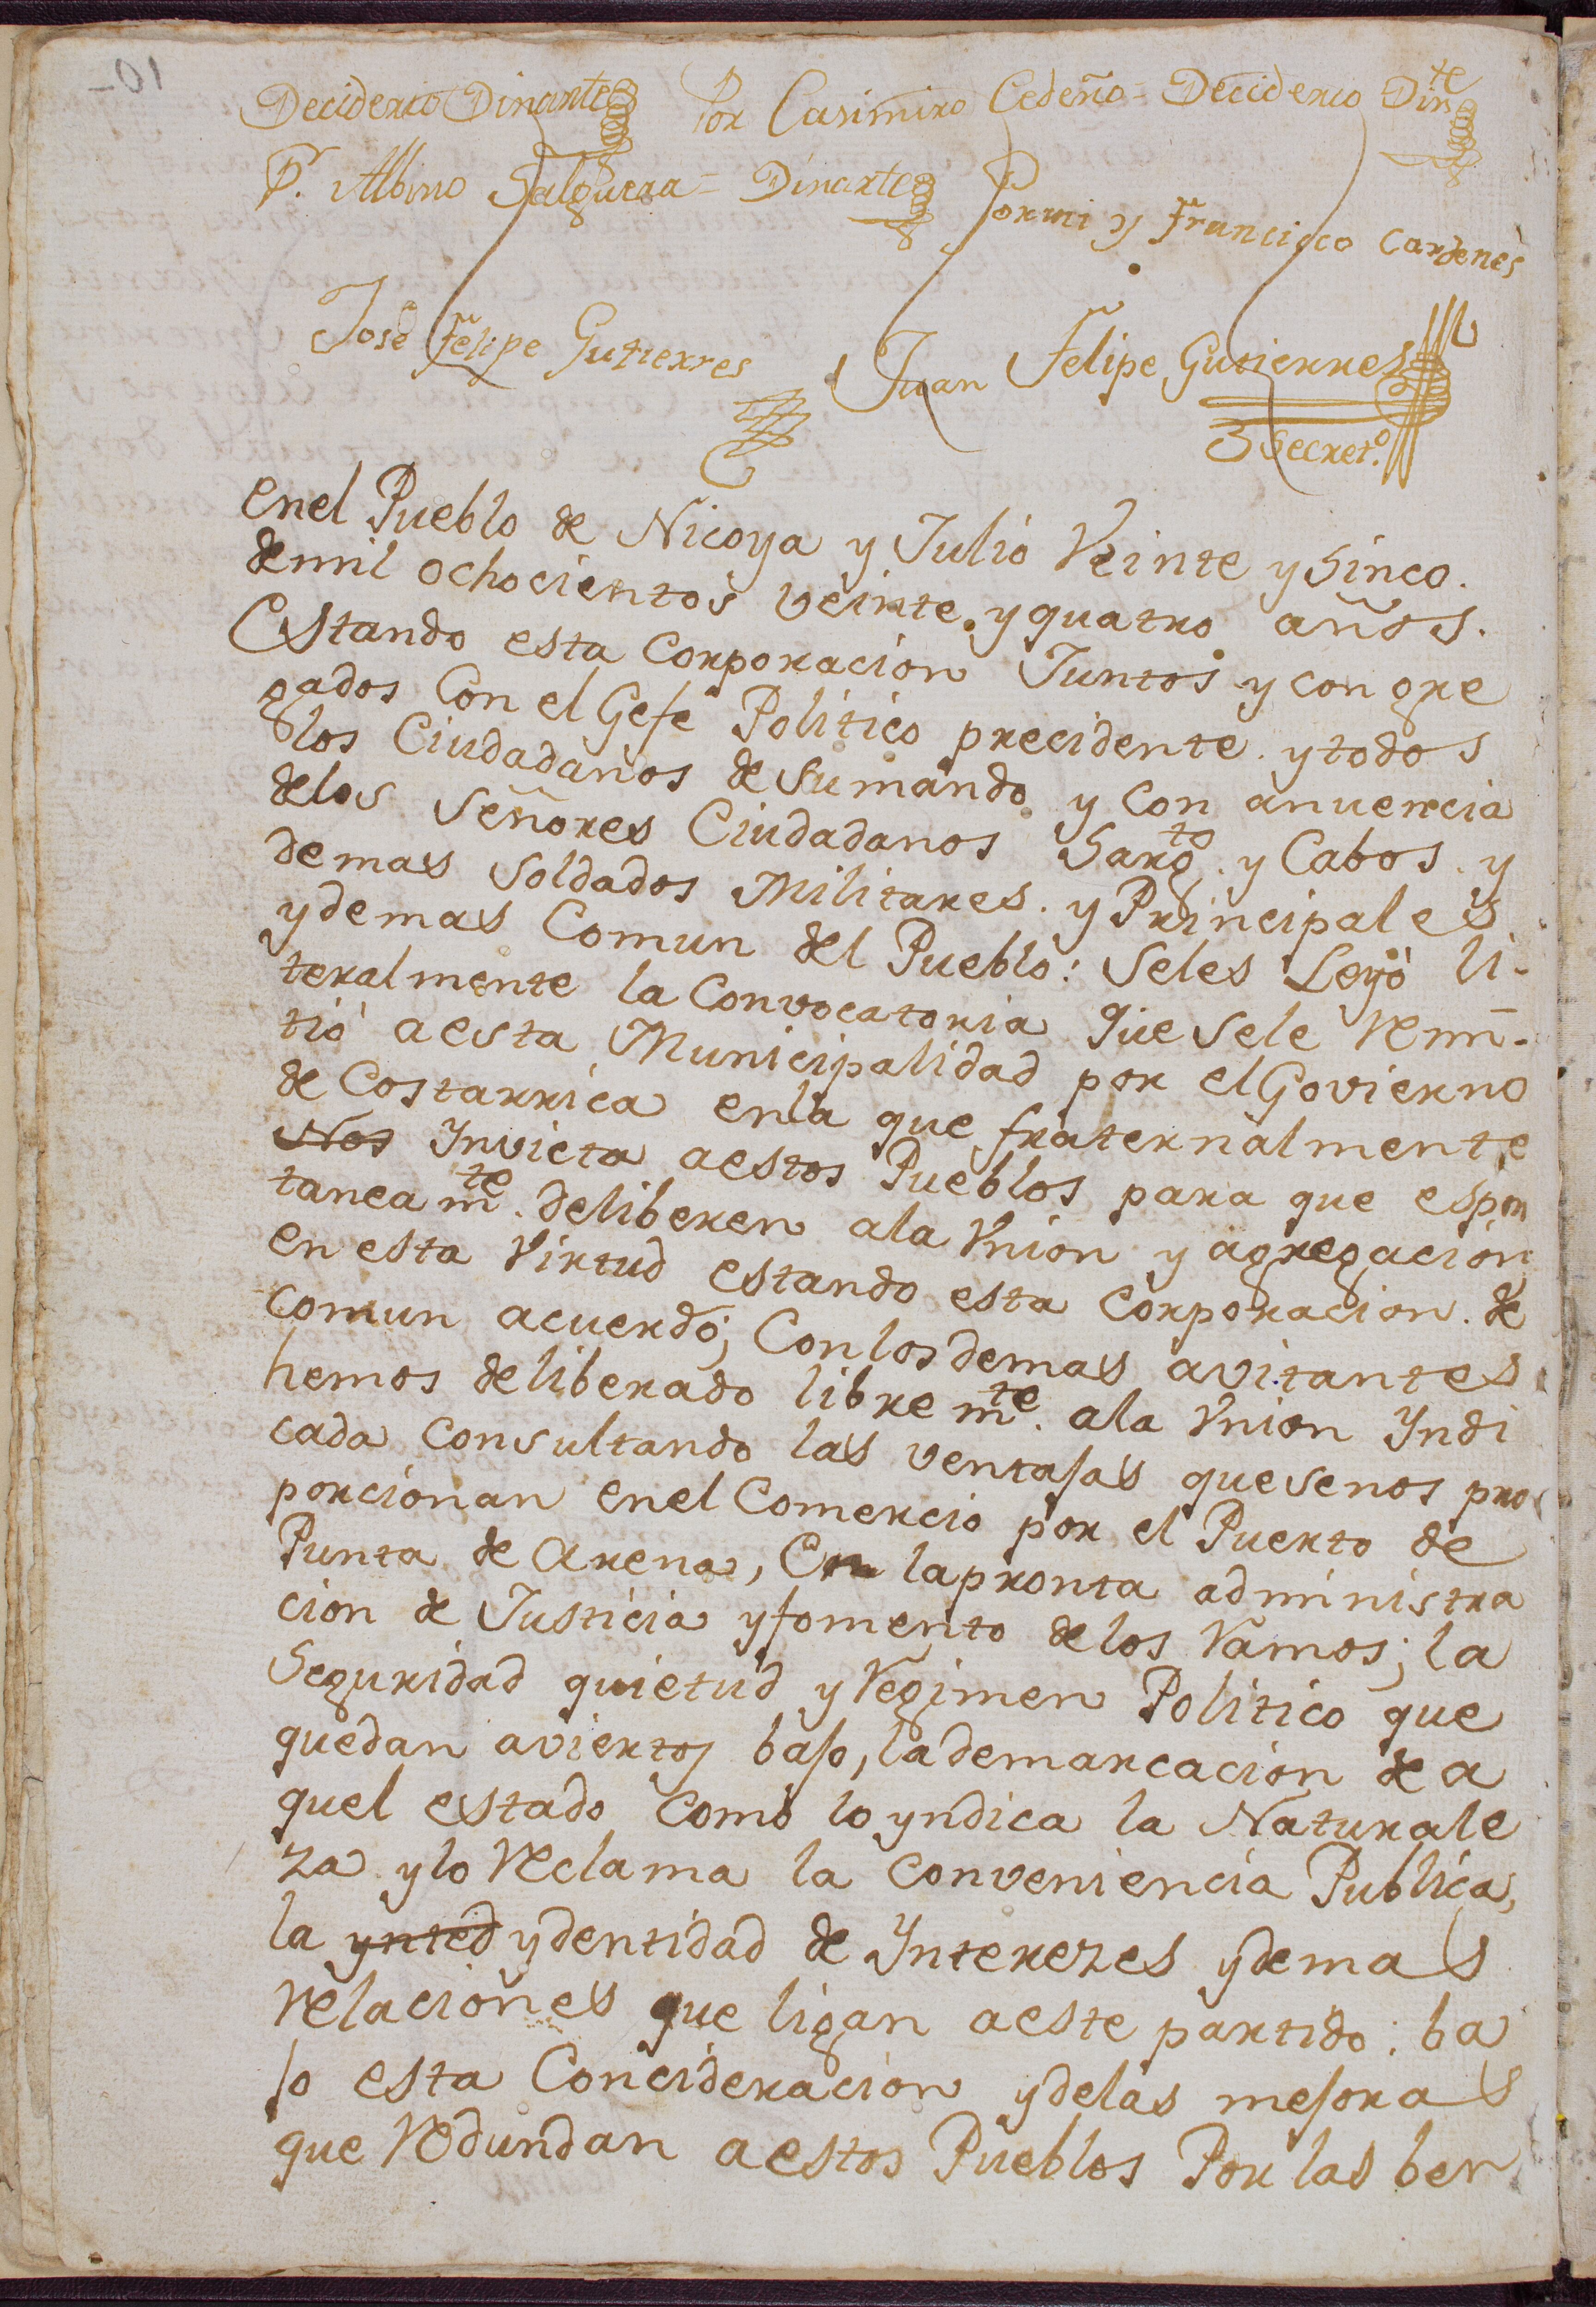 Deciderio Dinarte Por Casimiro Cedeño = Deciderio Din.te
P. Albino Salguera = Dinarte Por mi y Francisco Cardenes
José Felipe Gutierres Juan Felipe Gutierres
Secret.o
enel Pueblo de Nicoya y Julio Veinte y Sinco.
demil ochocientos veinte y quatro años.
Estando esta Corporacion Juntos y con gre
gados Con el Gefe Politico precidente. y todos
los Ciudadanos de Sumando y Con anuencia
delos Señores Ciudadanos Sarg.to y Cabos. y
demas Soldados Militares. y Principales
ydemas Comun del Pueblo: Seles Leyó li-
teralmente la Convocatoria que Sele remi-
tió aesta Municipalidad por elGovierno
de Costarrica enla que fraternalmente
Nos Invicta aestos Pueblos para que espon
tanea m.te deliberen ala Vnion y agregacion
en esta Virtud estando esta Corporacion. de
comun acuerdo; Con losdemas avitantes
hemos deliberado libre m.te ala Vnion Yndi
cada Consultando las ventajas quesenos pro
porcionan enel Comercio por el Puerto de
Punta de Arena, En lapronta administra
cion de Justicia yfomento delos ramos; la
Seguridad quietud y regimen Politico que
quedan aviertos bajo, lademarcacion de a
quel estado como lo yndica la Naturale
za ylo reclama la Conveniencia Publica,
la ynted ydentidad de Ynterezes ydemas
relaciones que ligan aeste partido: ba
jo esta Concideracion ydelas mejoras
que redundan aestos Pueblos Por las ben